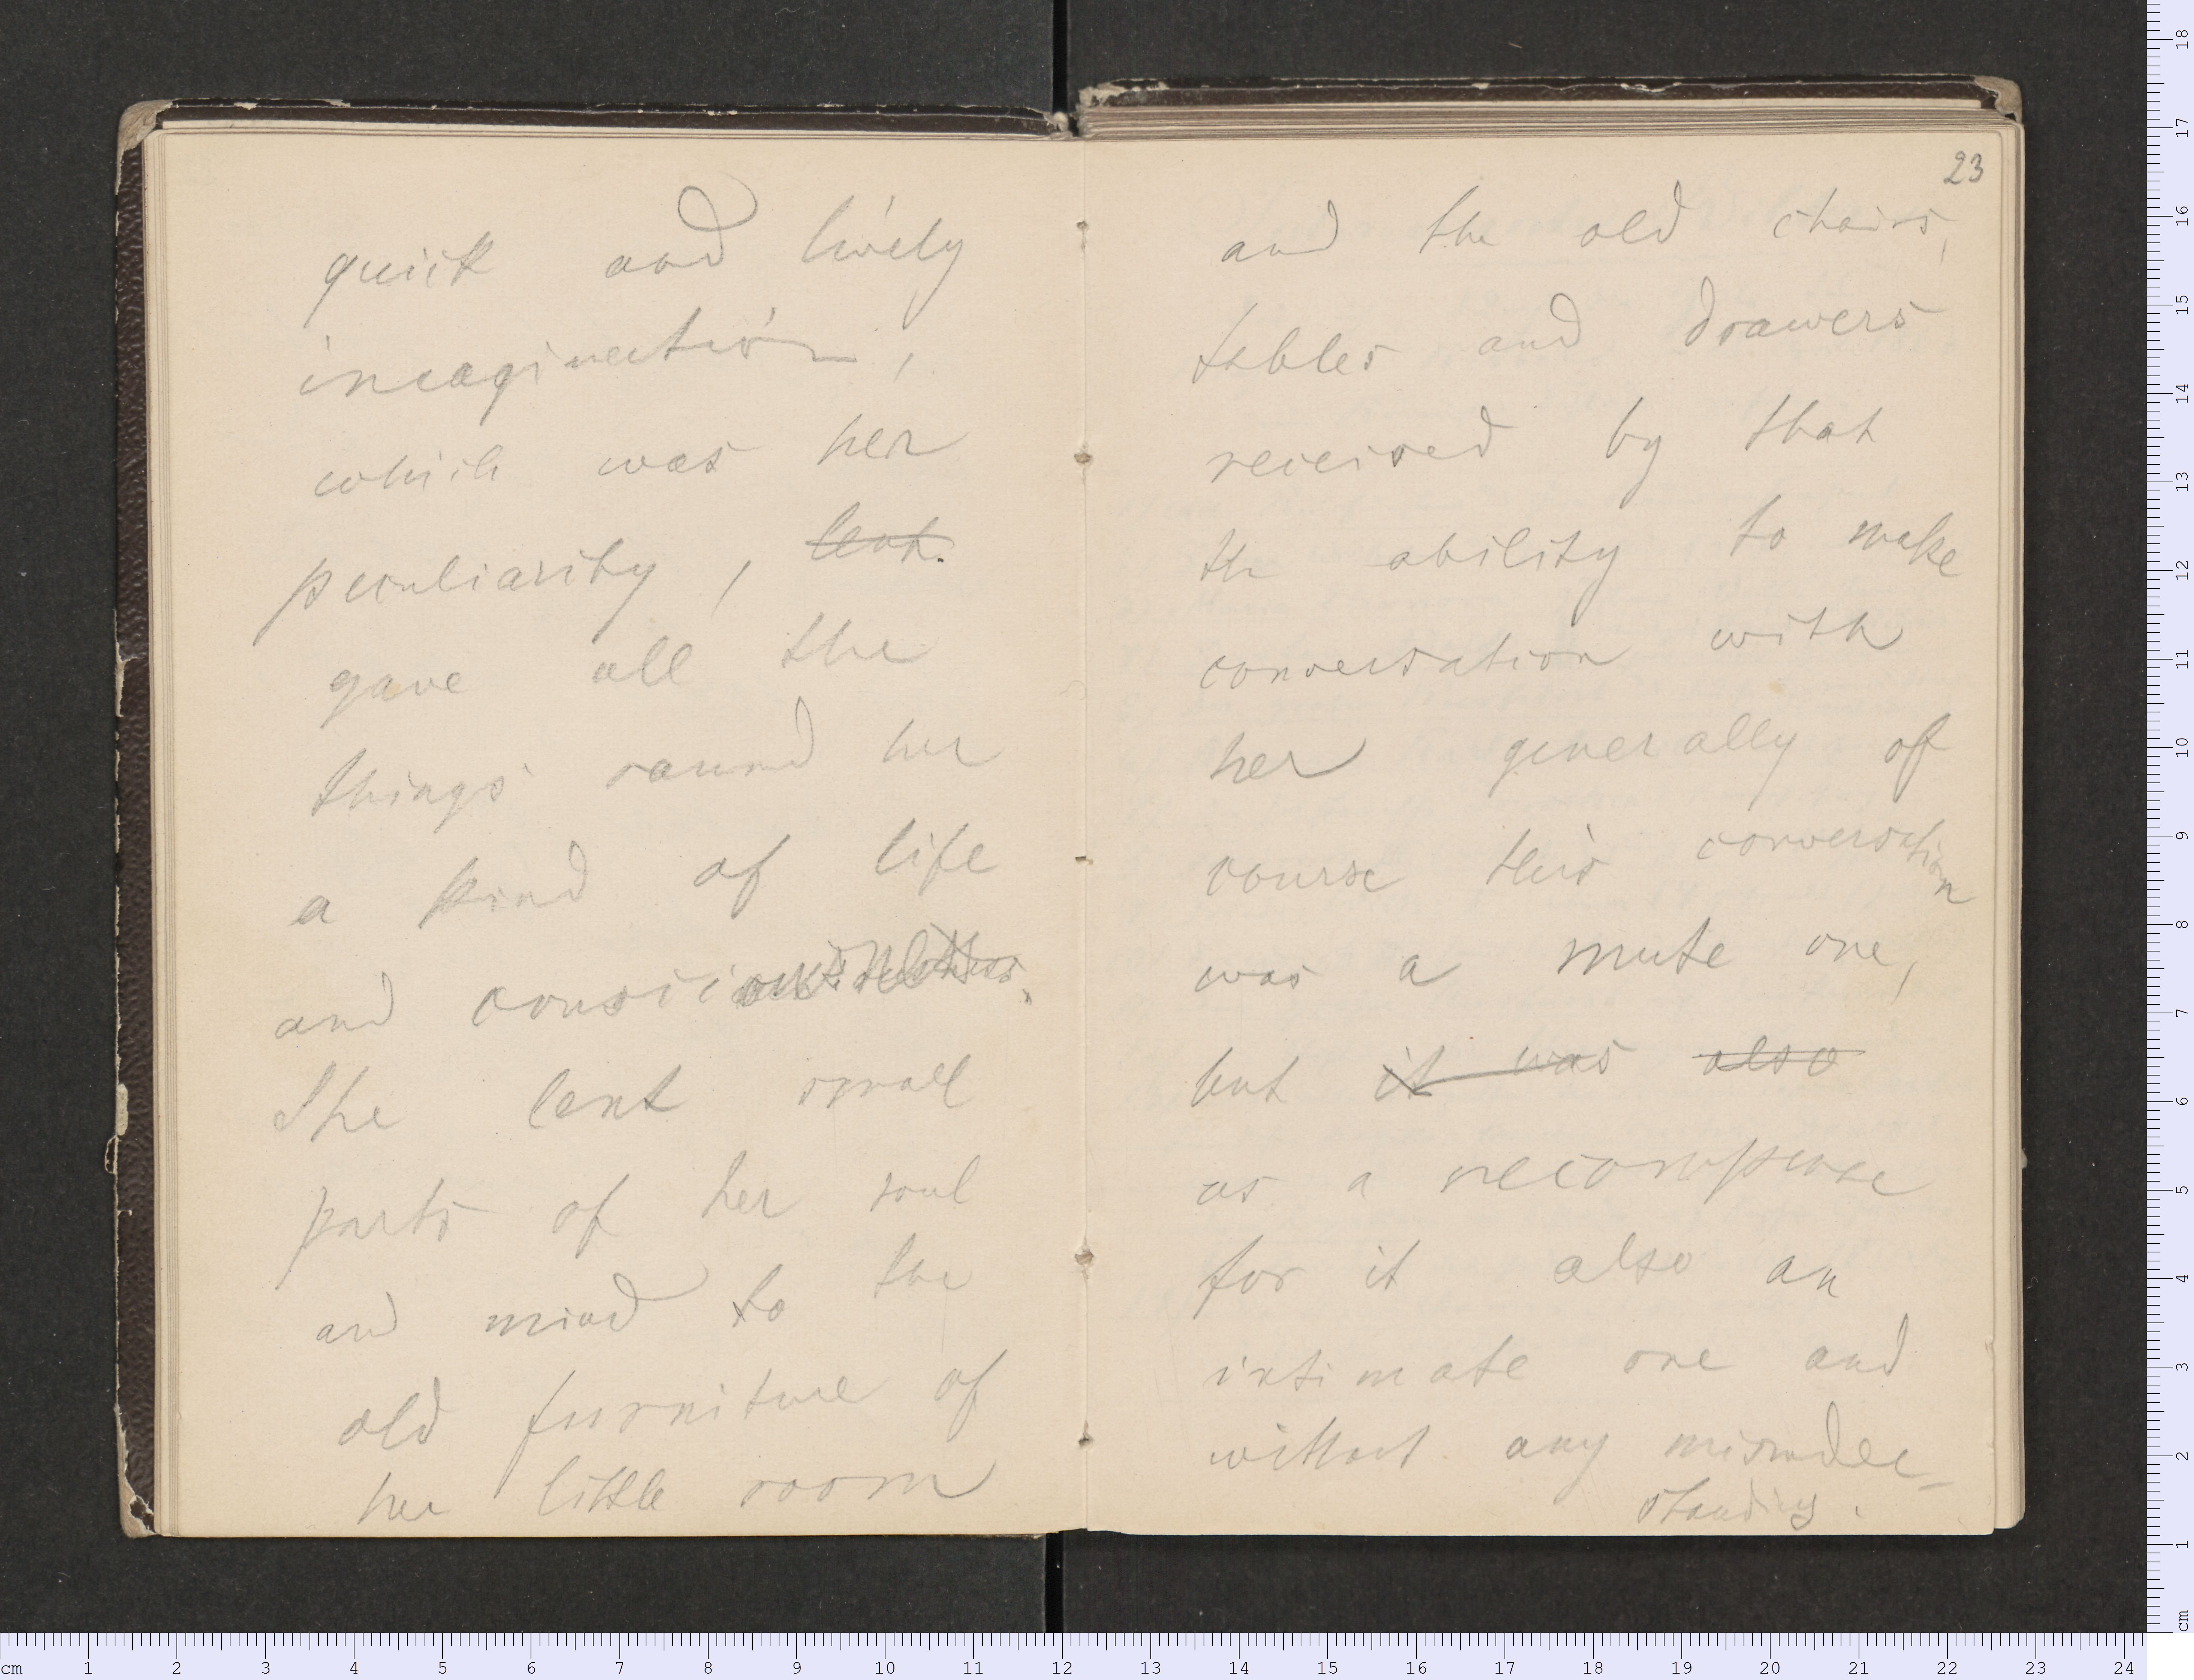 quick and lively
imagination,
which was her
peculiarity, lent.
gave all the
things round her
a kind of life
and
She lent small
parts of her soul
and mind to the
old furniture of
her little room
23
and the old chairs,
tables and drawers
received by that
the ability to make
conversation with
her generally of
course this conversation
was a mute one,
but it was also
as a recompense
for it also an
intimate one and
without any misunder-
standing.